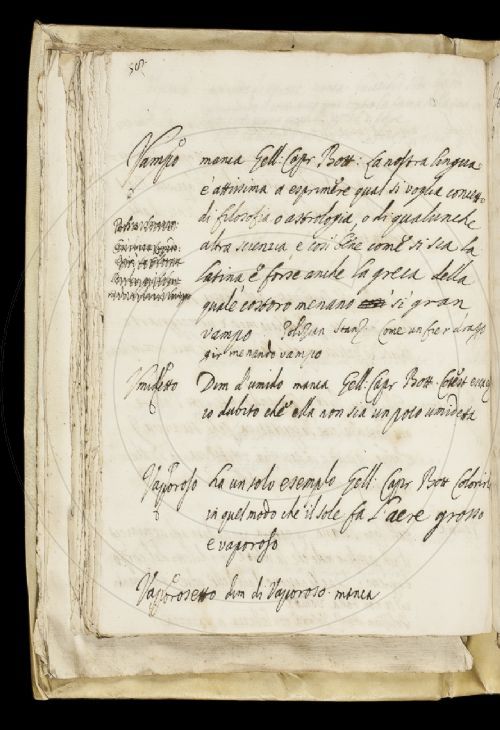 Vampo manca Gell: Capr Bott: La nostra lingua
è attissima a esprimere qual si voglia concetto
di filosofia o astrologia, o di qualunche
altra scienzia e così bene come si sia la
latina e forse anche la greca della
quale costoro menano si gran
vampo Polizian Stanz. Come un fier drago
gir menando vampo
Umidetto Dim d'umido manca Gell: Capr Bott
io dubito che ella non sia un poco umidetta
Vaporoso ha un solo esempio Gell: Capr Bott Colorirlo
in quel modo che il sole fa l'aere grosso
e vaporoso
Vaporosetto dim di Vaporoso manca